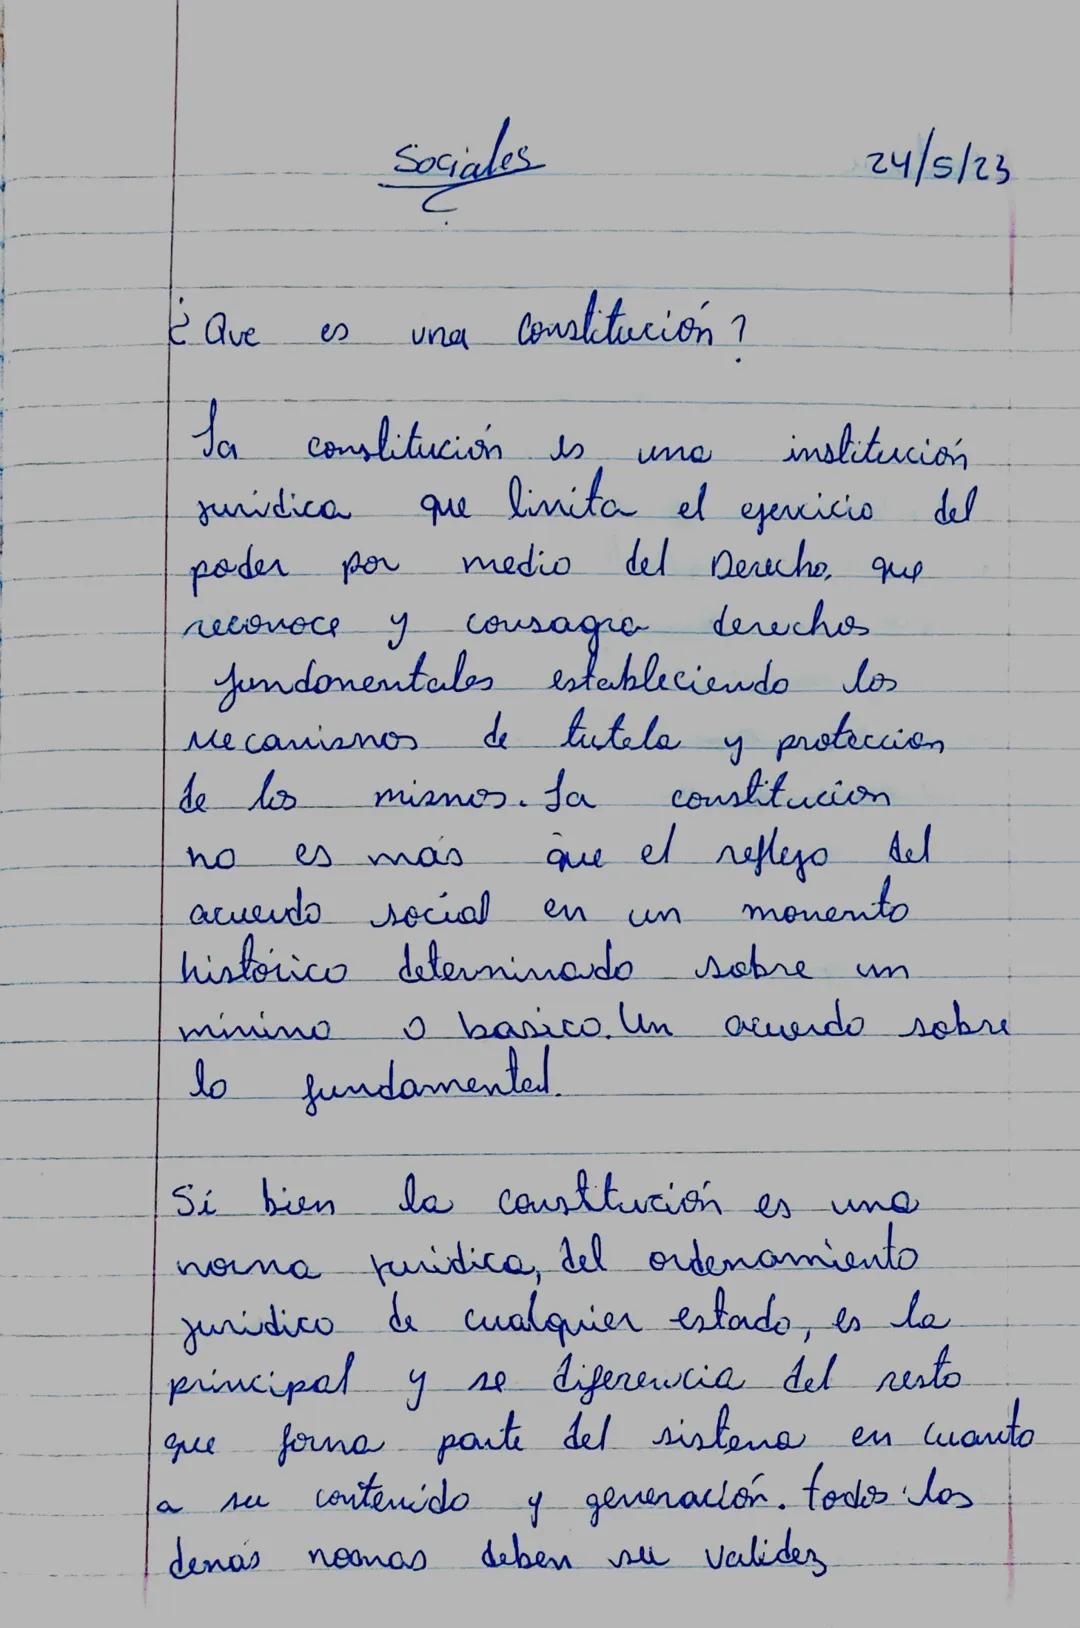 Sociales
24/5/23
¿Que es una Constitución?
La constitución es una institución
juridica que limita el ejercicio del
poder por medio del Derecho, que
reconoce y consagra derechos
fundamentales estableciendo los
Mecanismos de tutela y proteccion
de los mismos. La constitucion
no es más que el reflejo del
acuerdo social en un momento
histórico determinado sobre un
mínimo o basico. Un acuerdo sobre
lo fundamental.
Si bien la constitución es una
norma juridica, del ordenamiento
juridico de cualquier estado, es la
principal y se diferencia del resto
que forma parte del sistema en cuanto
a su contenido y generación. todos los
demás normas deben su validez